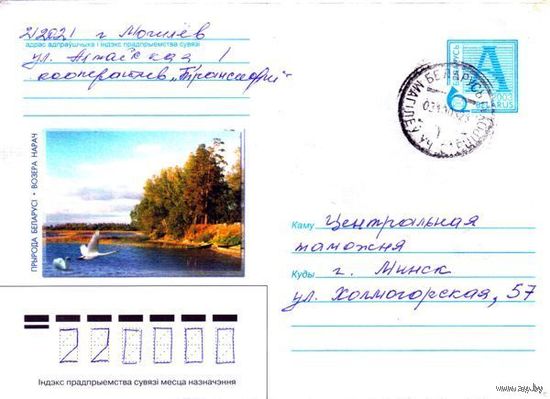 212021 г Могилёв
адрас адпраўшчыка і індэкс прадпрыемства сувязі
ул. Алтайская 1
кооператив "Транспорт"
ПРЫРОДА БЕЛАРУСІ • ВОЗЕРА НАРАЧ
БЕЛАРУСЬ
А
2003
BELARUS
БЕЛАРУСЬ
МАГІЛЁЎ
Каму Центральная
таможня
Куды г. Минск
ул. Холмогорская, 57
220000
Індэкс прадпрыемства сувязі месца назначэння
www.ay.by